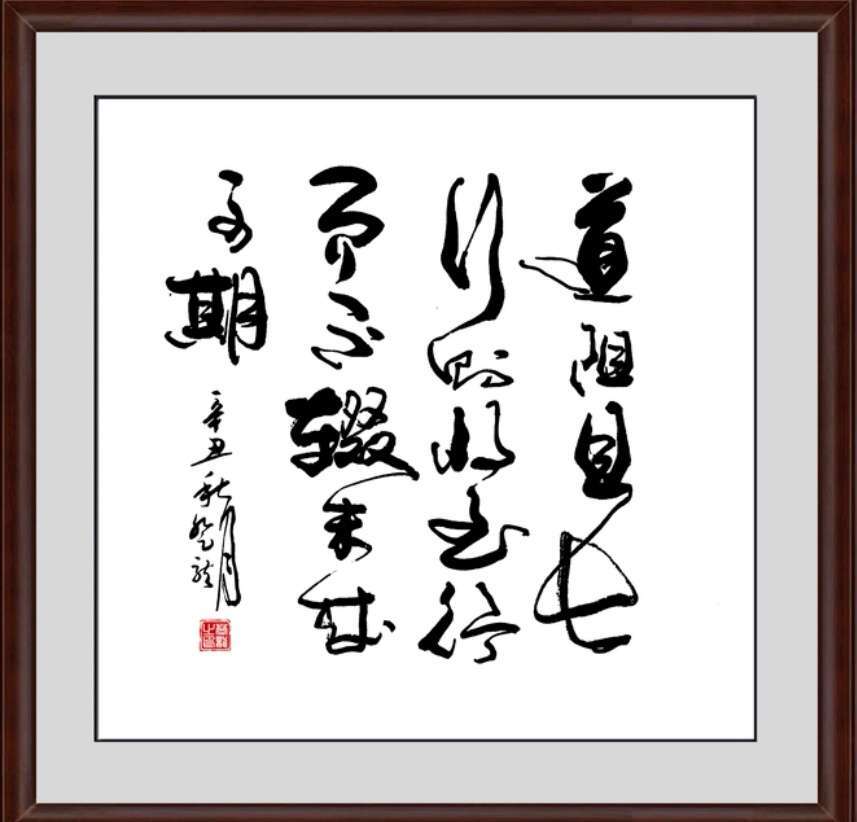 道阻且长
行则将至行
而不辍未来
可期
辛丑秋月